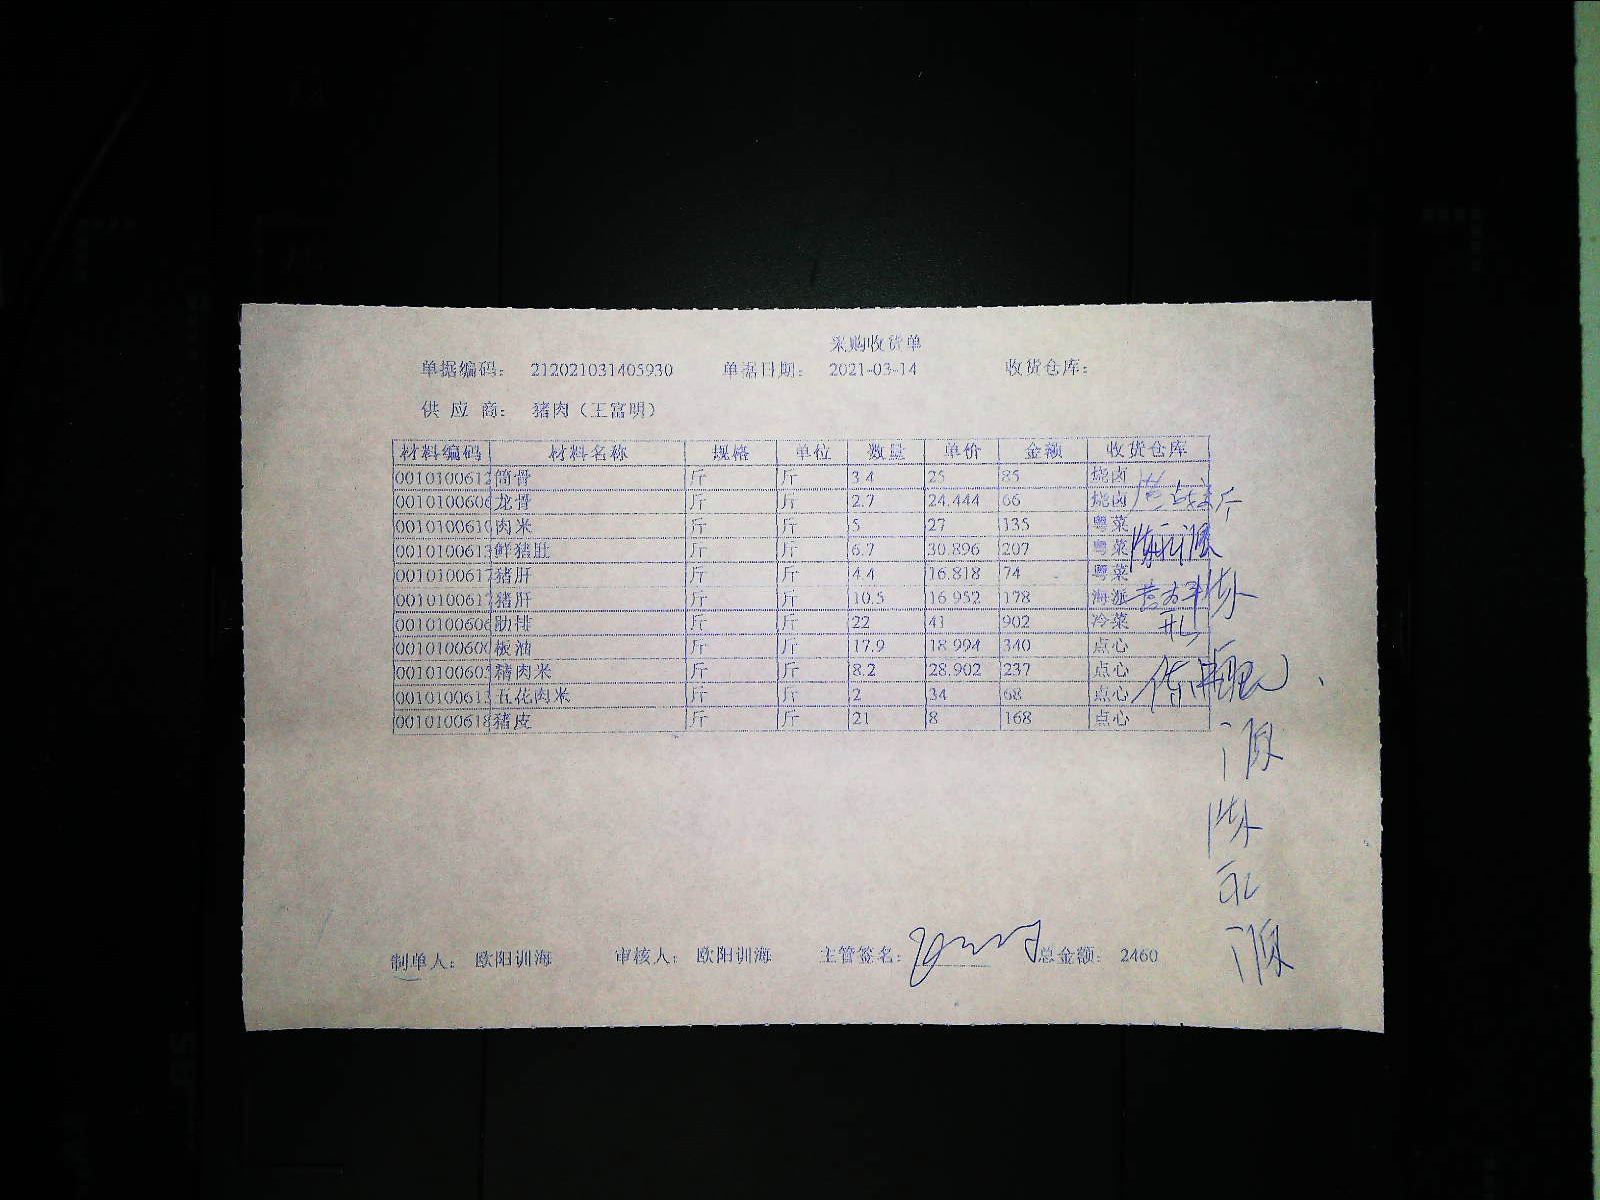 采购收货单
单据编码: 212021031405930 单据日期: 2021-03-14 收货仓库:
供 应 商: 猪肉(王富明)
材料编码 材料名称 规格 单位 数量 单价 金额 收货仓库
0010100612 筒骨 斤 斤 3.4 25 85 烧卤
0010100606 龙骨 斤 斤 2.7 24.444 66 烧卤
0010100610 肉米 斤 斤 5 27 135 粤菜
0010100613 鲜猪肚 斤 斤 6.7 30.896 207 粤菜
0010100617 猪肝 斤 斤 4.4 16.818 74 粤菜
0010100617 猪肝 斤 斤 10.5 16.952 178 海派
0010100606 肋排 斤 斤 22 41 902 冷菜
0010100600 板油 斤 斤 17.9 18.994 340 点心
0010100605 精肉米 斤 斤 8.2 28.902 237 点心
0010100613 五花肉米 斤 斤 2 34 68 点心
0010100618 猪皮 斤 斤 21 8 168 点心
制单人: 欧阳训海 审核人: 欧阳训海 主管签名: 总金额: 2460